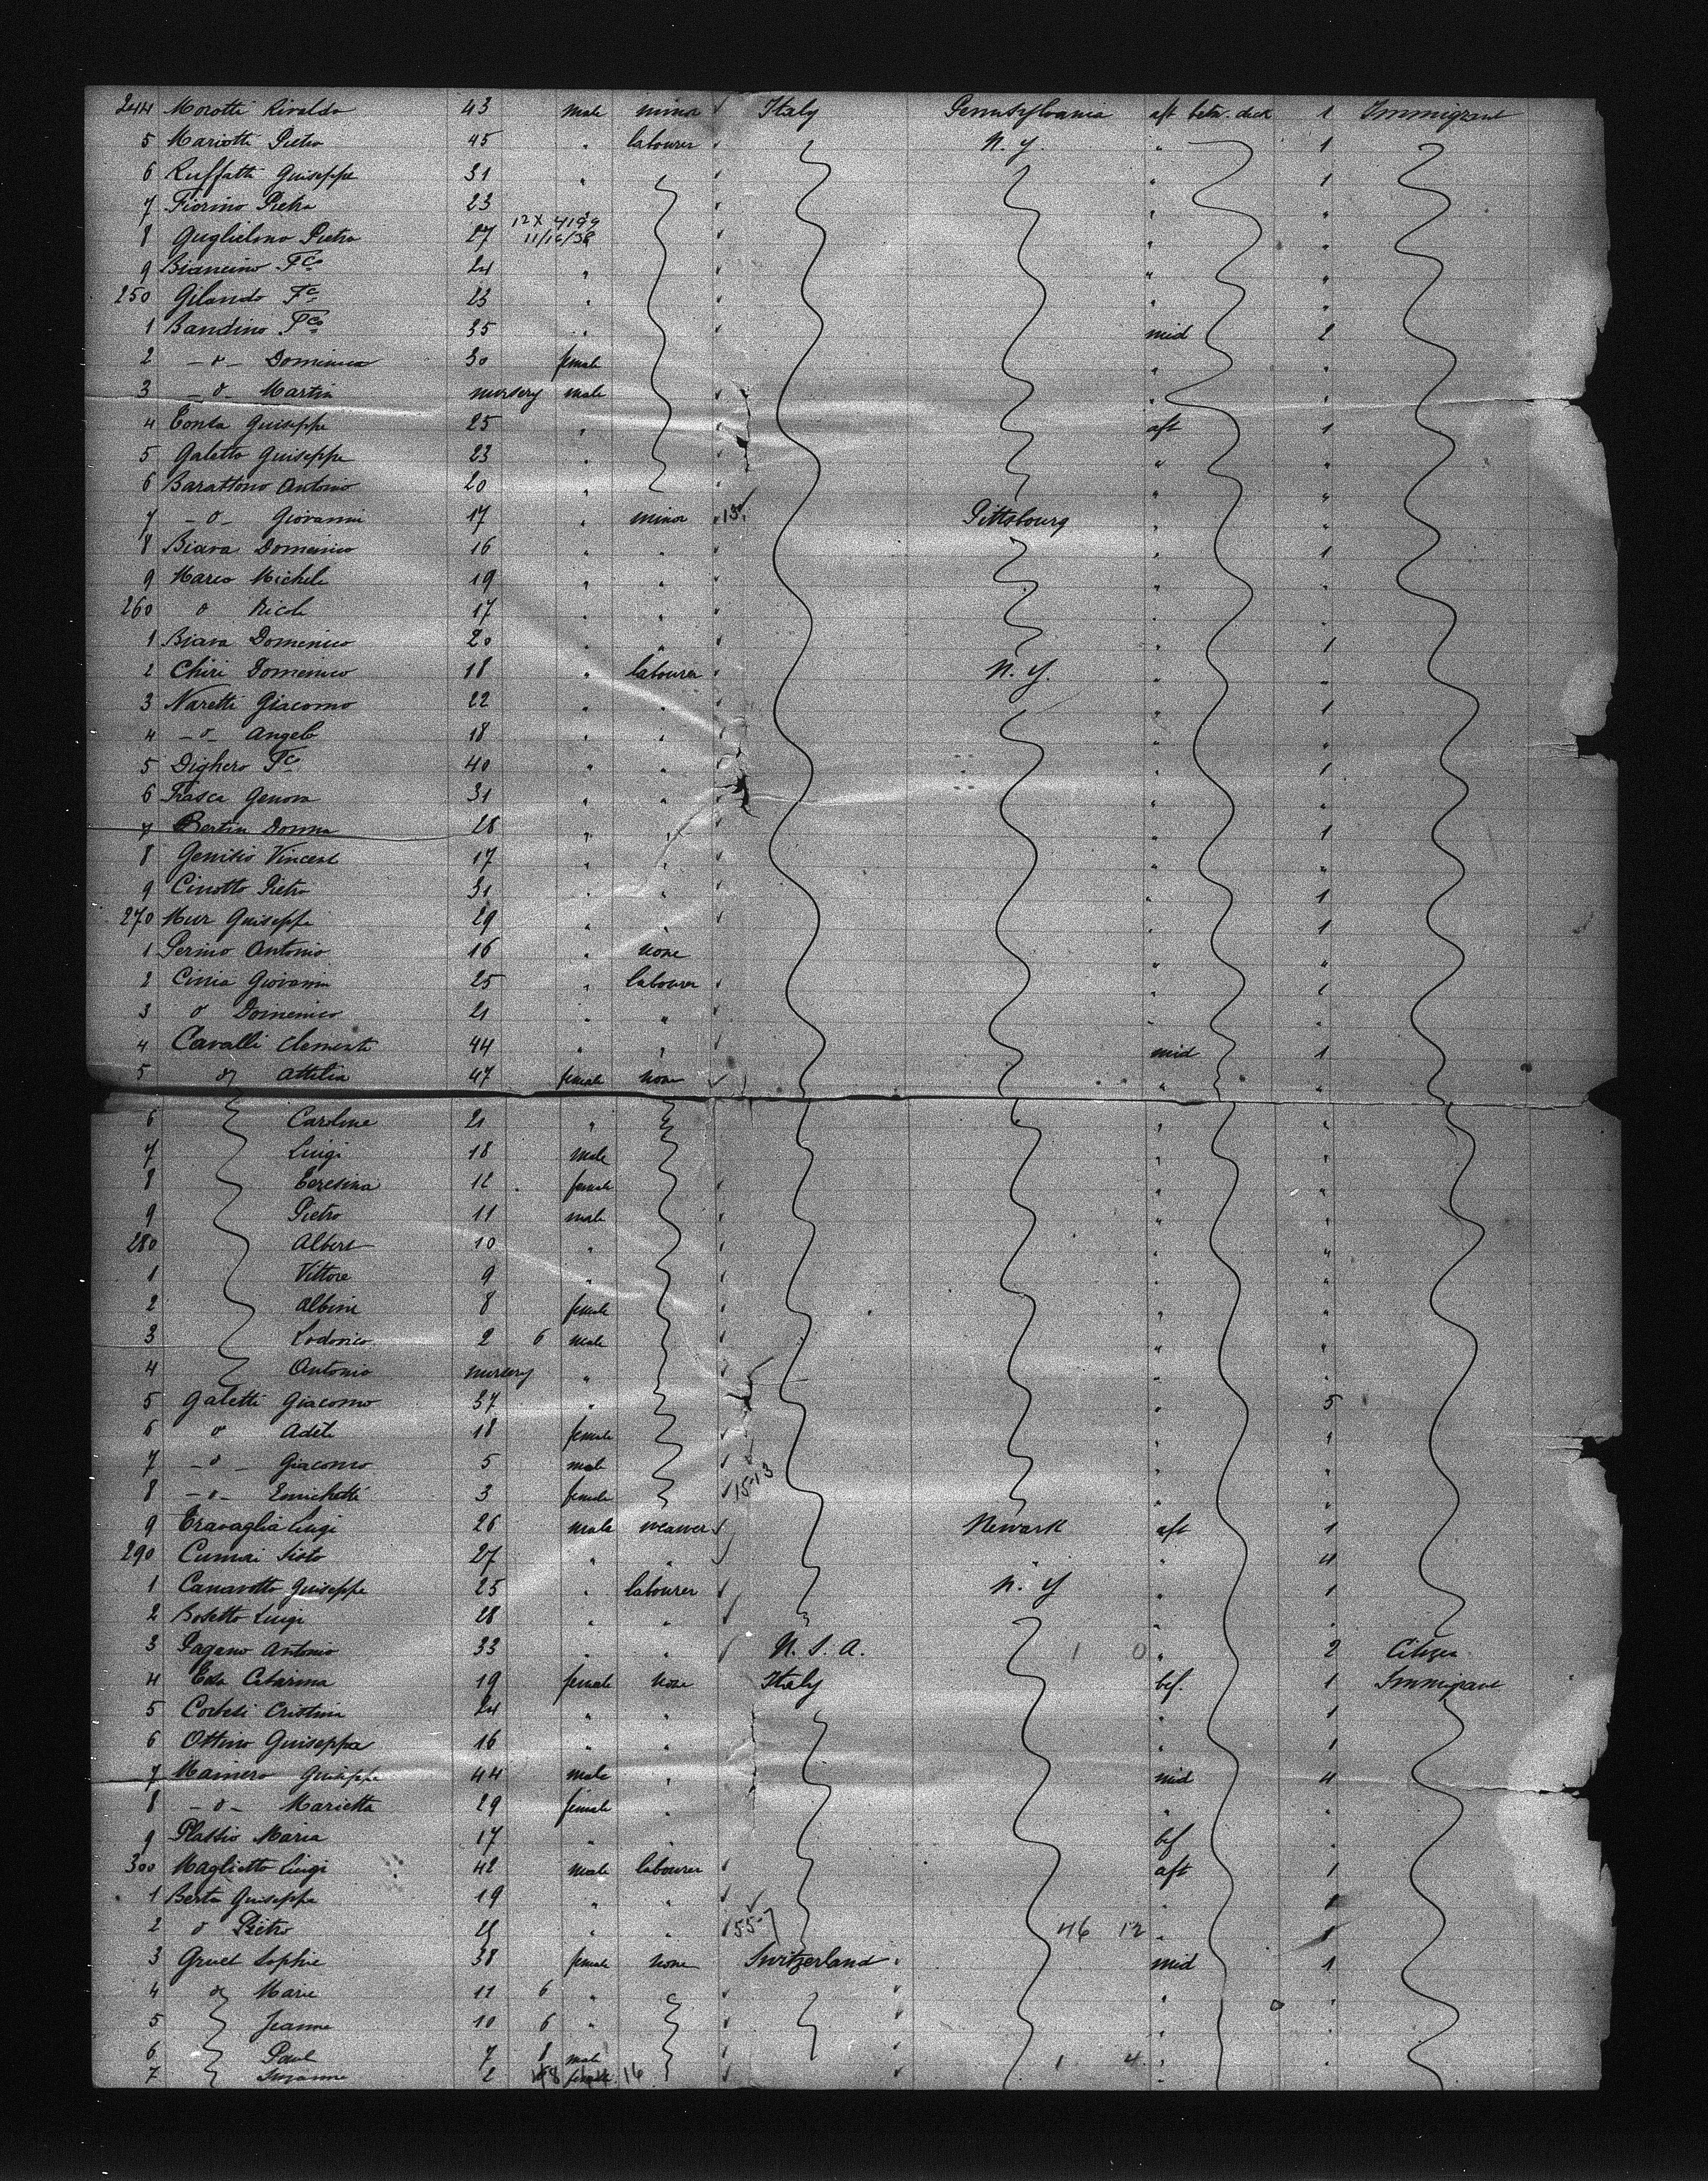 244 Morotti Rivaldo 43 male minor Italy Pennsylvania aft betw. deck 1 Immigrant
5 Mariotti Pietro 45 labourer N. Y. " 1
6 Ruffatti Guiseppe 31 " " 1
7 Fiorino Pietra 23 " "
12 X 4199
8 Guglielmo Pietro 27 11/16/38 " "
9 Biancino Fco 24 " " "
250 Gilando Fco 23 " " "
1 Bandino Fco 35 " mid 2
2 - o - Dominica 30 female " "
3 - o - Martin nursery male " "
4 Conta Guiseppe 25 " aft 1
5 Galetto Guiseppe 23 " " "
6 Barattono Antonio 20 " " "
7 - o - Giovanni 17 " minor Pittsbourg " "
8 Biava Domenico 16 " " " 1
9 Marco Michele 19 " " " "
260 o Nicola 17 " " " "
1 Biava Domenico 20 " " " 1
2 Chiri Domenico 18 " labourer N. Y. " "
3 Naretti Giacomo 22 " " " 1
4 - o - Angelo 18 " " " "
5 Dighero Fco 40 " " " 1
6 Frasca Genova 31 " " " "
7 Bertin Donna 28 " " " 1
8 Genisio Vincent 17 " " " "
9 Cinotto Pietro 31 " " " 1
270 Mur Guiseppe 29 " " " 1
1 Perino Antonio 16 " none " "
2 Cinia Giovanni 25 " labourer " 1
3 o Domenico 21 " " " "
4 Cavalli Clementi 44 " " mid 1
5 o Attilia 47 female none " "
6 Caroline 21 " " "
7 Luigi 18 male " "
8 Teresina 12 female " "
9 Pietro 11 male " "
280 Albert 10 " " "
1 Vittore 9 " " "
2 Albini 8 female " "
3 Lodovico 2 6 male " "
4 Antonio nursery " " "
5 Galetti Giacomo 37 " " 5
6 o Adele 18 female " "
7 - o - Giacomo 5 male " "
8 - o - Enrichetti 3 female 1513 " "
9 Travaglia Luigi 26 male weaver Newark aft 1
290 Cumai Sisto 27 " " " " 4
1 Canavotto Guiseppe 25 " labourer N. Y " 1
2 Bosetto Luigi 28 " " " "
3 Pagano Antonio 33 " " U. S. A. 1 0 " 2 Citizen
4 Catarina 19 female none Italy bef. 1 Immigrant
5 Cristina 24 " " " 1
6 Ottino Guiseppa 16 " " " 1
7 Mainero Guiseppe 44 male " mid 4
8 - o - Marietta 29 female " " "
9 Plassio Maria 17 " " bef "
300 Maglietto Luigi 42 male labourer aft 1
1 Berta Guiseppe 19 " " " 1
2 o Pietro " " 55 46 12 " 1
3 Gruet Sophie 38 female none Switzerland mid 1
4 o Marie 11 6 " " "
5 Jeanne 10 6 " " "
6 Paul 7 8 male 1 4 " "
7 Suzanne 2 female 16